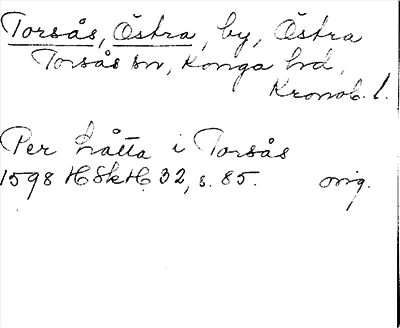 Torsås, Östra, by, Östra
Torsås sn, Konga hd,
Kronob. l.
Per Låtta i Torsås
1598 HSkH 32, s. 85. orig.